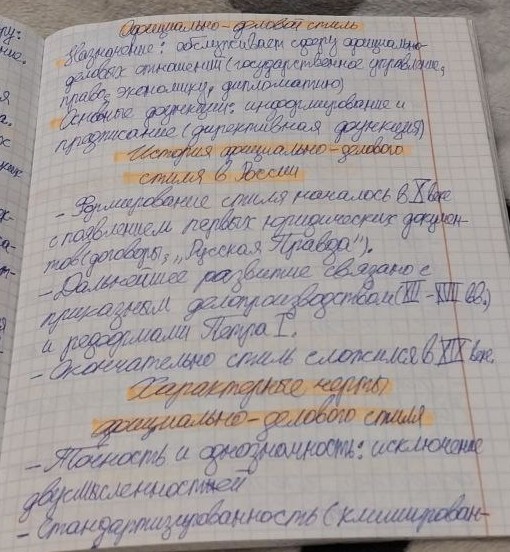 Официально-деловой стиль
Назначение: обслуживает сферу официально-
деловых отношений (государственное управление,
право, экономику, дипломатию)
Основные функции: информирование и
предписание (директивная функция)
История официально-делового
стиля в России
- Формирование стиля началось в X веке
с появлением первых юридических докумен-
тов (договоры, „Русская Правда").
- Дальнейшее развитие связано с
приказным делопроизводством (XVI - XVII вв.)
и реформами Петра I.
- Окончательно стиль сложился в XIX веке.
Характерные черты
официально-делового стиля
- Точность и однозначность: исключение
двусмысленностей
- Стандартизированность (клиширован-